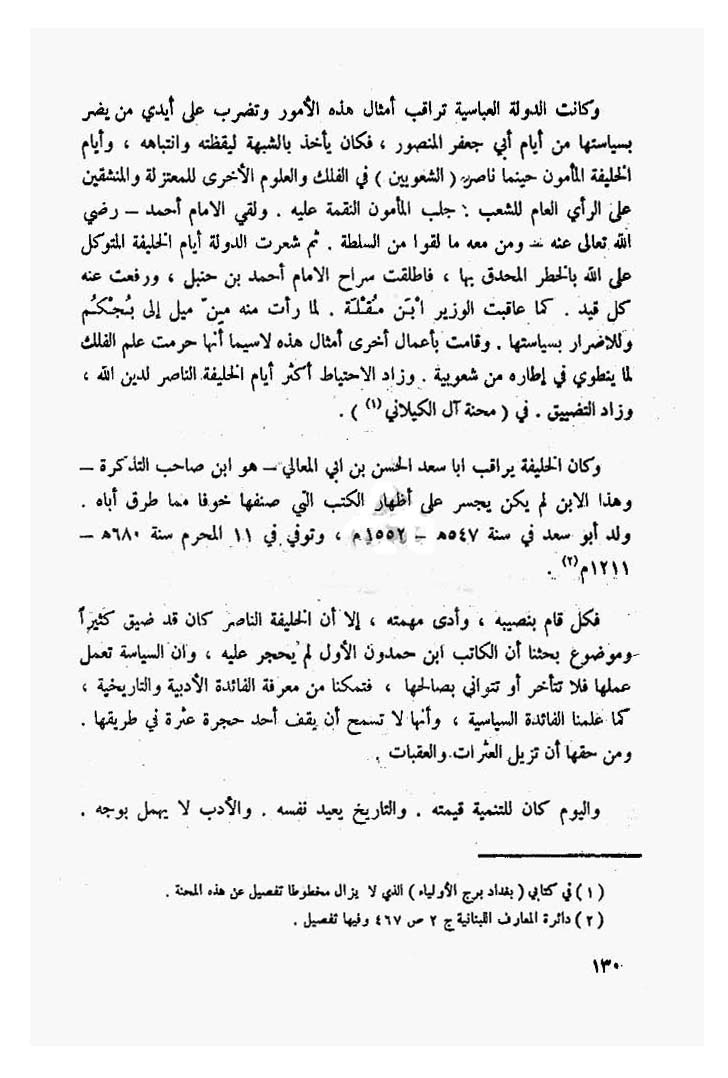 وكانت الدولة العباسية تراقب أمثال هذه الأمور وتضرب على أيدي من يضر
بسياستها من أيام أبي جعفر المنصور ، فكان يأخذ بالشبهة ليقظته وانتباهه ، وأيام
الخليفة المأمون حينما ناصر ( الشعوبين ) في الفلك والعلوم الأخرى للمعتزلة والمنشقين
على الرأي العام للشعب . جلب المأمون النقمة عليه . ولقي الامام أحمد – رضي
الله تعالى عنه – ومن معه ما لقوا من السلطة . ثم شعرت الدولة أيام الخليفة المتوكل
على الله بالخطر المحدق بها ، فاطلقت سراح الامام أحمد بن حنبل ، ورفعت عنه
كل قيد . كما عاقبت الوزير ابْن مُقْلَة . لما رأت منه مِن ميل إلى بُجْكُم
وللاضرار بسياستها . وقامت بأعمال أخرى أمثال هذه لاسيما أنها حرمت علم الفلك
لما ينطوي في إطاره من شعوبية . وزاد الاحتياط أكثر أيام الخليفة الناصر لدين الله ،
وزاد التضييق . في ( محنة آل الكيلاني (١) ) .
وكان الخليفة يراقب ابا سعد الحسن بن ابي المعالي – هو ابن صاحب التذكرة –
وهذا الابن لم يكن يجسر على أظهار الكتب التي صنفها خوفا مما طرق أباه .
ولد أبو سعد في سنة ٥٤٧ه – ١٥٥٢م ، وتوفي في ١١ المحرم سنة ٦٨٠ه –
١٢١١م(٢) .
فكل قام بنصيبه ، وأدى مهمته ، إلا أن الخليفة الناصر كان قد ضيق كثيراً
وموضوع بحثنا أن الكاتب ابن حمدون الأول لم يحجر عليه ، وان السياسة تعمل
عملها فلا تتأخر أو تتواني بصالحها ، فتمكنا من معرفة الفائدة الأدبية والتاريخية ،
كما علمنا الفائدة السياسية ، وأنها لا تسمح أن يقف أحد حجرة عثرة في طريقها .
ومن حقها أن تزيل العثرات والعقبات .
واليوم كان للتنمية قيمته . والتاريخ يعيد نفسه . والأدب لا يهمل بوجه .
(١) في كتابي ( بغداد برج الأولياء ) الذي لا يزال مخطوطا تفصيل عن هذه المحنة .
(٢) دائرة المعارف اللبنانية ج ٢ ص ٤٦٧ وفيها تفصيل .
١٣٠